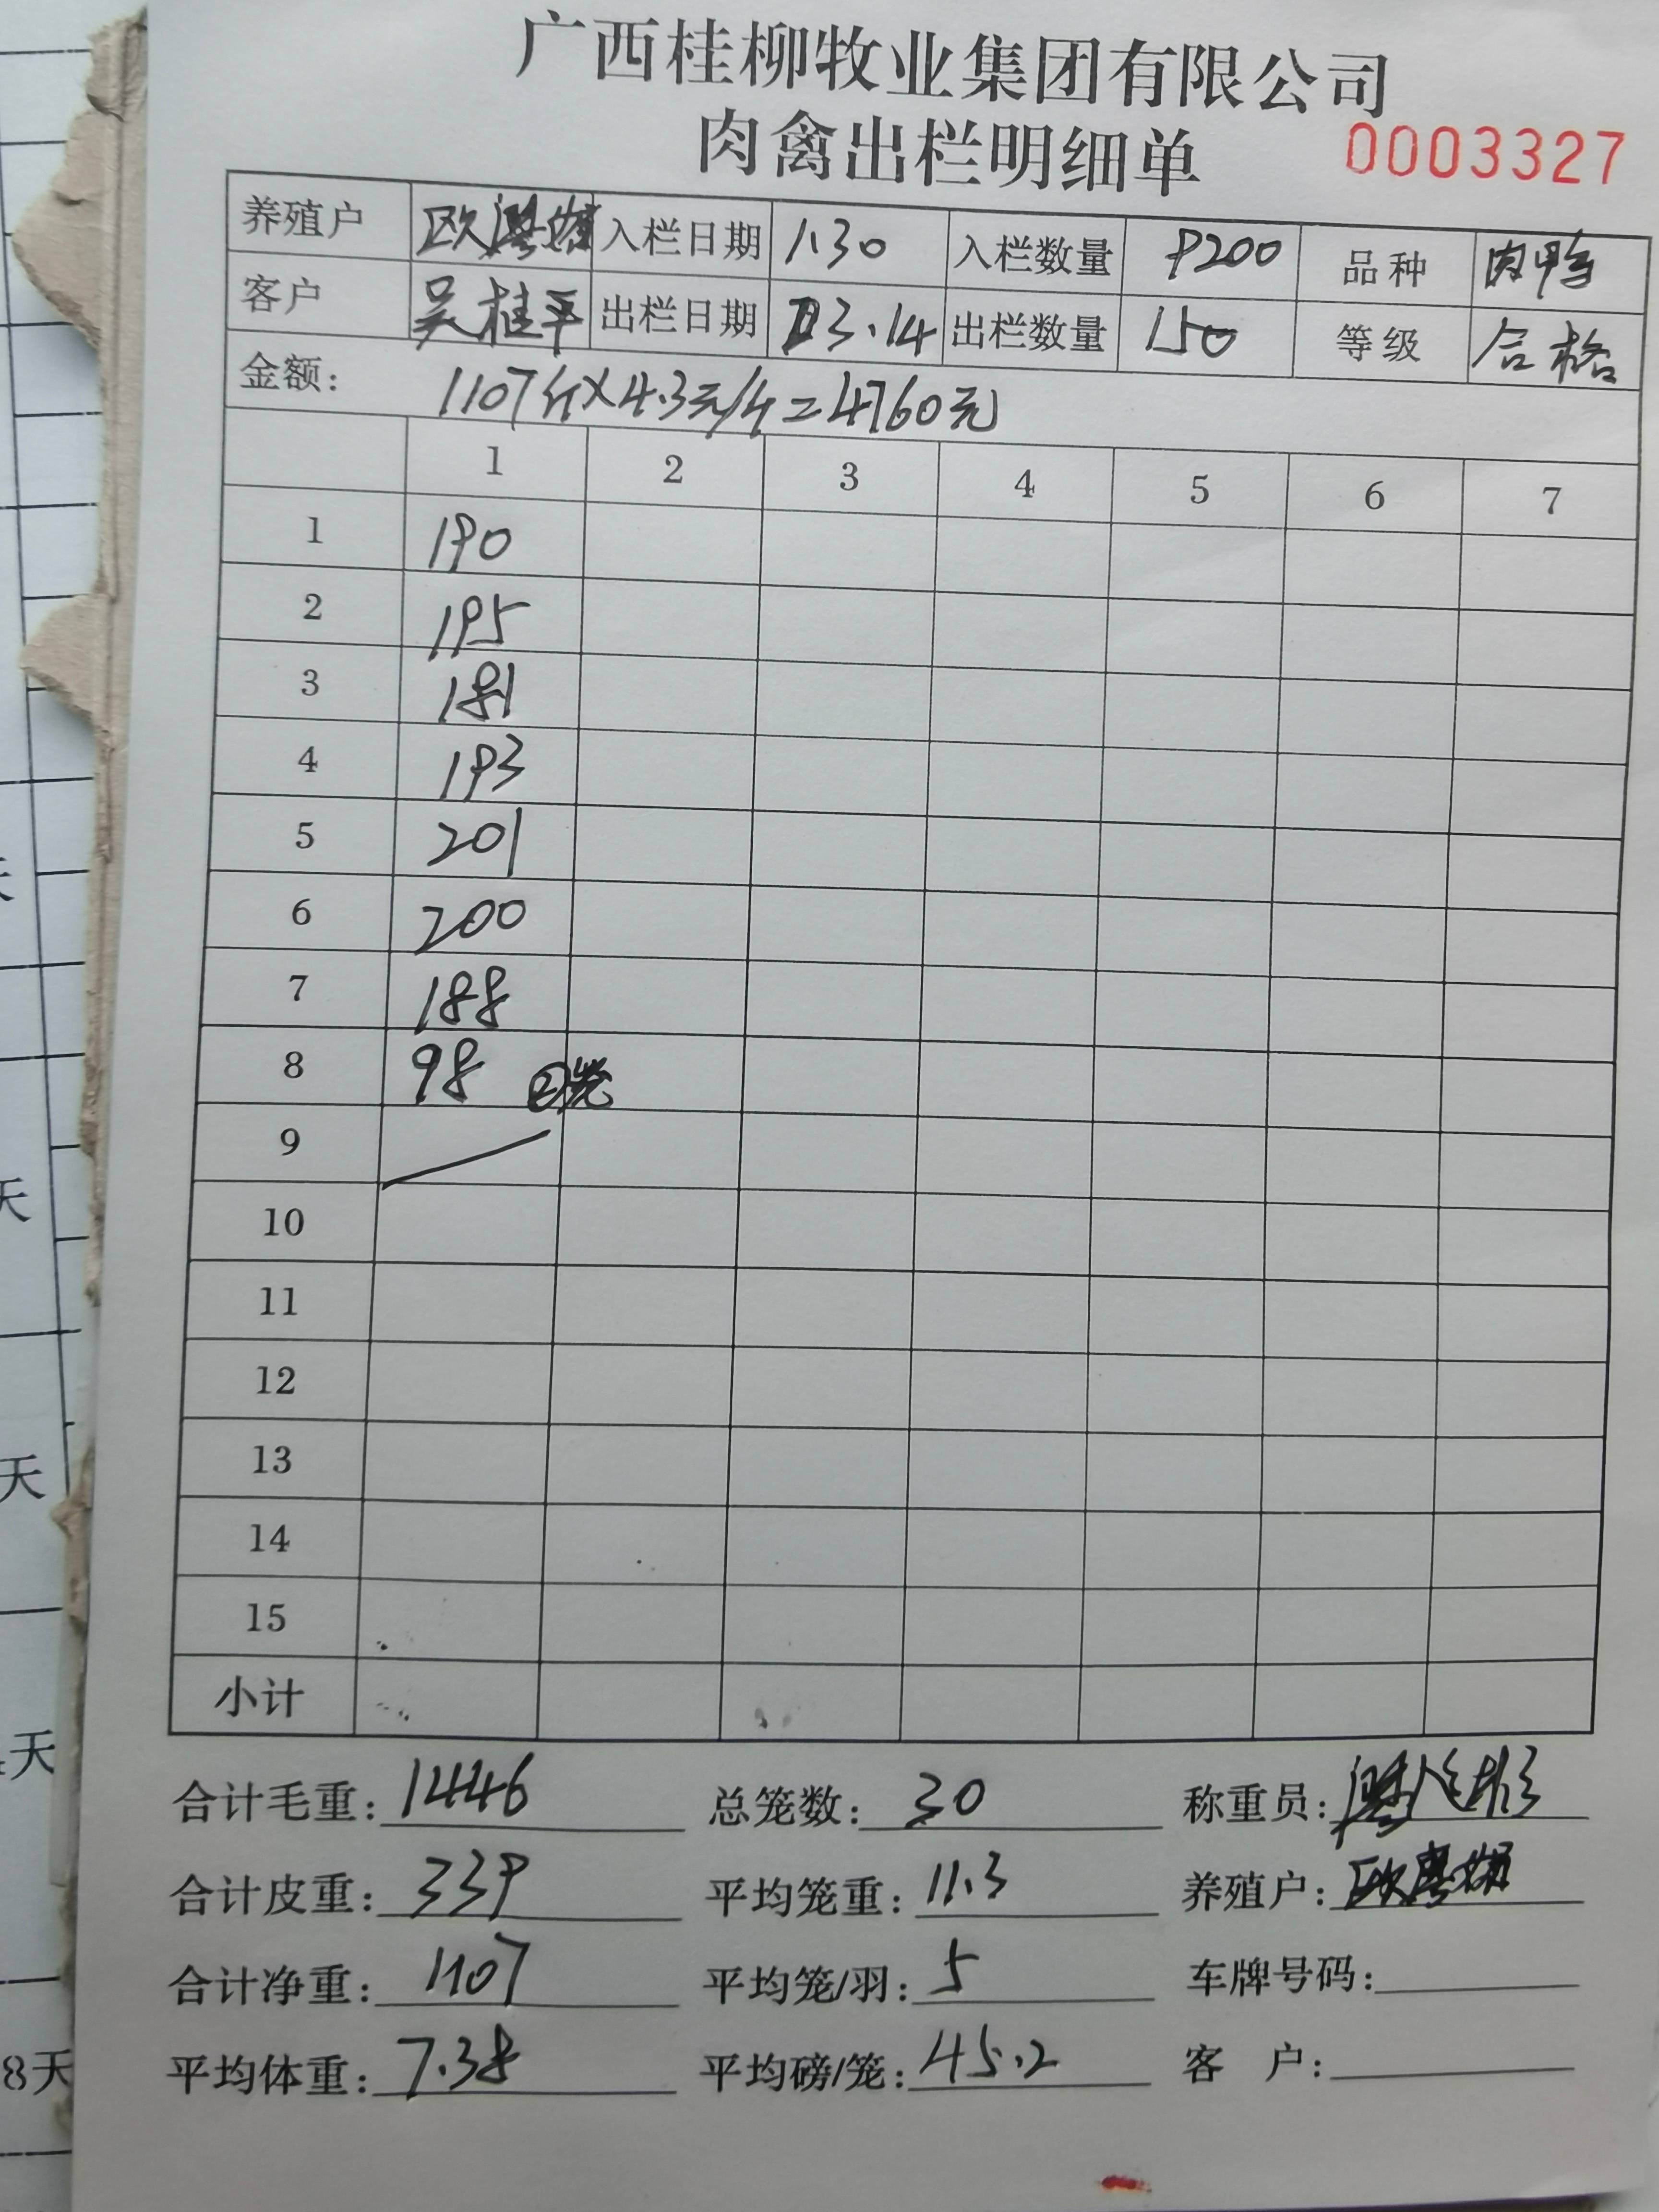 广西桂柳牧业集团有限公司
肉禽出栏明细单 0003327
养殖户 欧 入栏日期 1.30 入栏数量 9200 品种 肉鸭
客户 吴桂平 出栏日期 3.14 出栏数量 150 等级 合格
金额: 1107斤×4.3元/斤=4760元
1 2 3 4 5 6 7
1 190
2 195
3 181
4 193
5 201
6 200
7 188
8 98 ②笼
9
10
11
12
13
14
15
小计
合计毛重: 1446 总笼数: 30 称重员:
合计皮重: 339 平均笼重: 11.3 养殖户: 欧
合计净重: 1107 平均笼/羽: 5 车牌号码:
平均体重: 7.38 平均磅/笼: 45.2 客 户:
天
天
天
8天